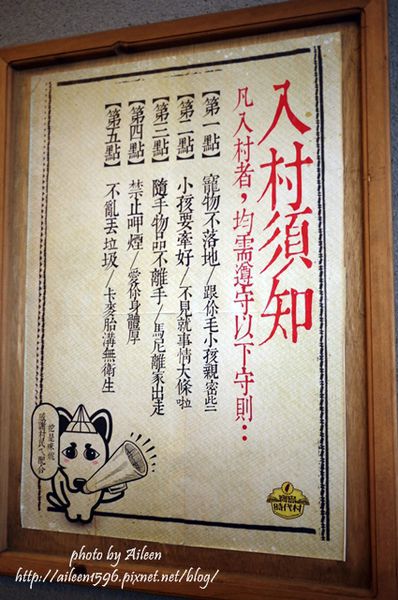 入村須知
凡入村者，均需遵守以下守則：
【第一點】寵物不落地/跟你毛小孩親密些
【第二點】小孩要牽好/不見就事情大條啦
【第三點】隨手物品不離手/馬尼離家出走
【第四點】禁止呷煙/愛你身體厚
【第五點】不亂丟垃圾/卡麥胎溝無衛生
感謝村民ㄟ配合
時代村
photo by Aileen
http://aileen1596.pixnet.net/blog/